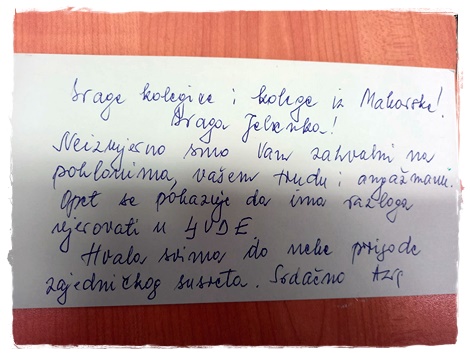 Drage kolegice i kolege iz Makarske!
Draga Jelenka!
Neizmjerno smo Vam zahvalni na
poklonima, vašem trudu i angažmanu.
Opet se pokazuje da ima razloga
vjerovati u LJUDE
Hvala svima do neke prigode
zajedničkog susreta. Srdačno